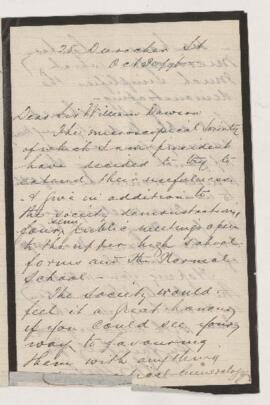 25 Durocher St
Oct
Dear Sir William Dawson
The microscopical Society
of which I am president
have decided to try to
extend their usefulness
& give in addition to
the Society demonstrations,
four public meetings open
to the upper high School
forms and the Normal
School —
The Society would
feel it a great honour
if you could see your
way to favouring
them with anything
mineralogy